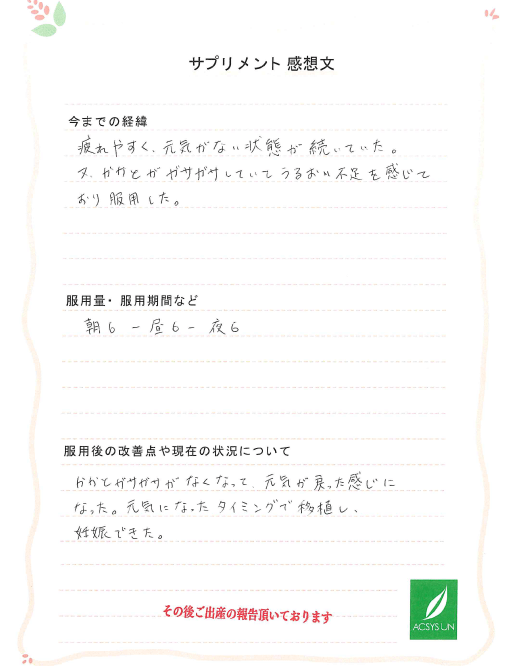 サプリメント 感想文
今までの経緯
疲れやすく、元気がない状態が続いていた。
又、かかとがガサガサしていてうるおい不足を感じて
おり服用した。
服用量・服用期間など
朝6 ー 昼6 ー 夜6
服用後の改善点や現在の状況について
かかとガサガサがなくなって、元気が戻った感じに
なった。元気になったタイミングで移植し、
妊娠できた。
その後ご出産の報告頂いております
ACSYSUN